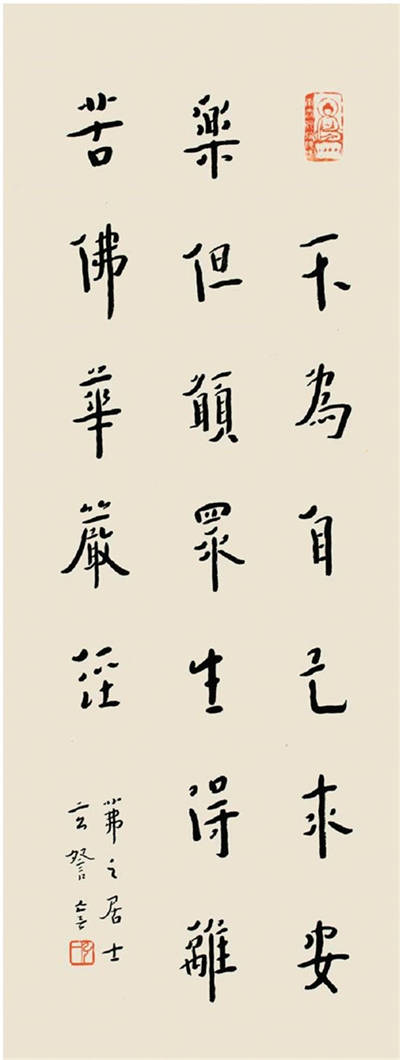 不為自己求安
樂但願眾生得離
苦佛華嚴經
茀之居士